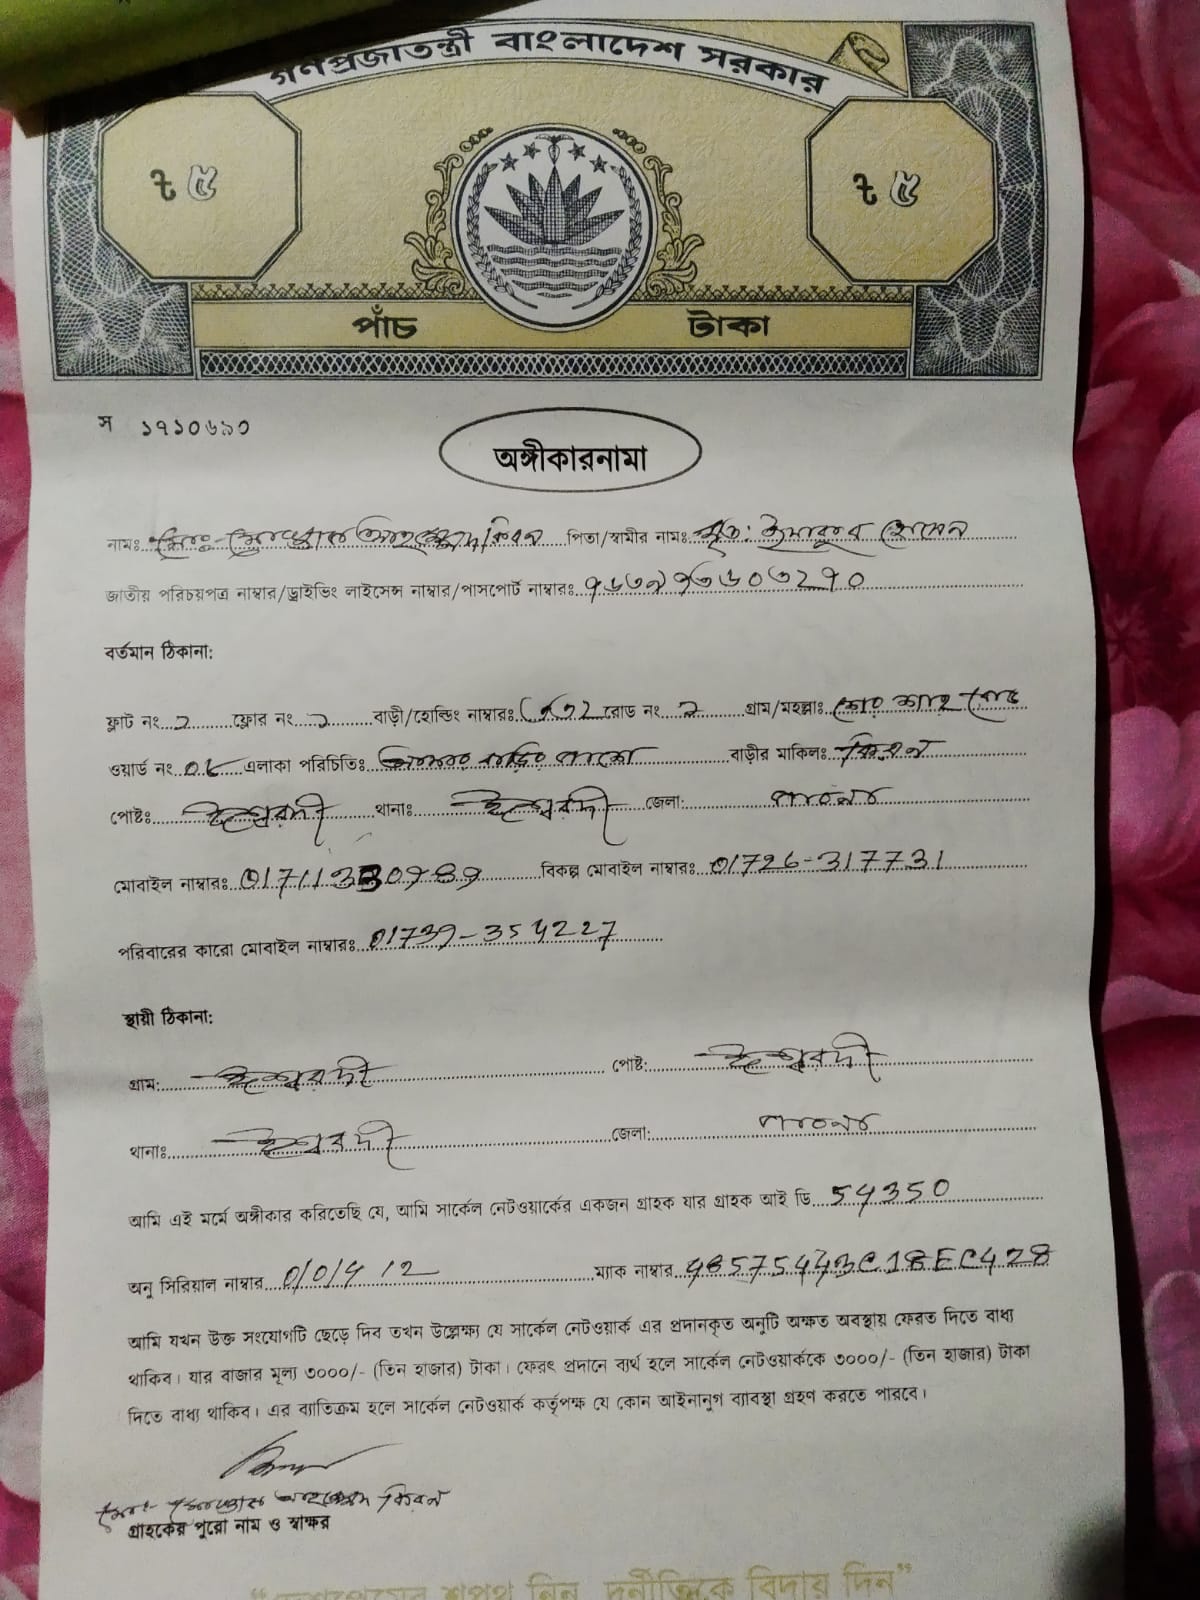 গণপ্রজাতন্ত্রী বাংলাদেশ সরকার
৳ ৫ ৳ ৫
পাঁচ টাকা
স ১৭১০৬৯০
অঙ্গীকারনামা
নামঃ মোঃ- আহম্মেদ কিরন পিতা/স্বামীর নামঃ মৃত: হোসেন
জাতীয় পরিচয়পত্র নাম্বার/ড্রাইভিং লাইসেন্স নাম্বার/পাসপোর্ট নাম্বারঃ
বর্তমান ঠিকানা:
ফ্লাট নং ফ্লোর নং বাড়ী/হোল্ডিং নাম্বারঃ রোড নং গ্রাম/মহল্লাঃ শের শাহ রোড
ওয়ার্ড নং এলাকা পরিচিতিঃ বাড়ীর মাকিলঃ কিরন
পোষ্টঃ ঈশ্বরদী থানাঃ ঈশ্বরদী জেলা: পাবনা
মোবাইল নাম্বারঃ বিকল্প মোবাইল নাম্বারঃ 01726-317731
পরিবারের কারো মোবাইল নাম্বারঃ 01739-354227
স্থায়ী ঠিকানা:
গ্রাম: ঈশ্বরদী পোষ্ট: ঈশ্বরদী
থানাঃ ঈশ্বরদী জেলা: পাবনা
আমি এই মর্মে অঙ্গীকার করিতেছি যে, আমি সার্কেল নেটওয়ার্কের একজন গ্রাহক যার গ্রাহক আই ডি 54350
অনু সিরিয়াল নাম্বার ম্যাক নাম্বার
আমি যখন উক্ত সংযোগটি ছেড়ে দিব তখন উল্লেক্ষ্য যে সার্কেল নেটওয়ার্ক এর প্রদানকৃত অনুটি অক্ষত অবস্থায় ফেরত দিতে বাধ্য
থাকিব। যার বাজার মূল্য ৩০০০/- (তিন হাজার) টাকা। ফেরৎ প্রদানে ব্যর্থ হলে সার্কেল নেটওয়ার্ককে ৩০০০/- (তিন হাজার) টাকা
দিতে বাধ্য থাকিব। এর ব্যাতিক্রম হলে সার্কেল নেটওয়ার্ক কর্তৃপক্ষ যে কোন আইনানুগ ব্যাবস্থা গ্রহণ করতে পারবে।
মোঃ- আহম্মেদ কিরন
গ্রাহকের পুরো নাম ও স্বাক্ষর
“দেশপ্রেমের শপথ নিন, দুর্নীতিকে বিদায় দিন”